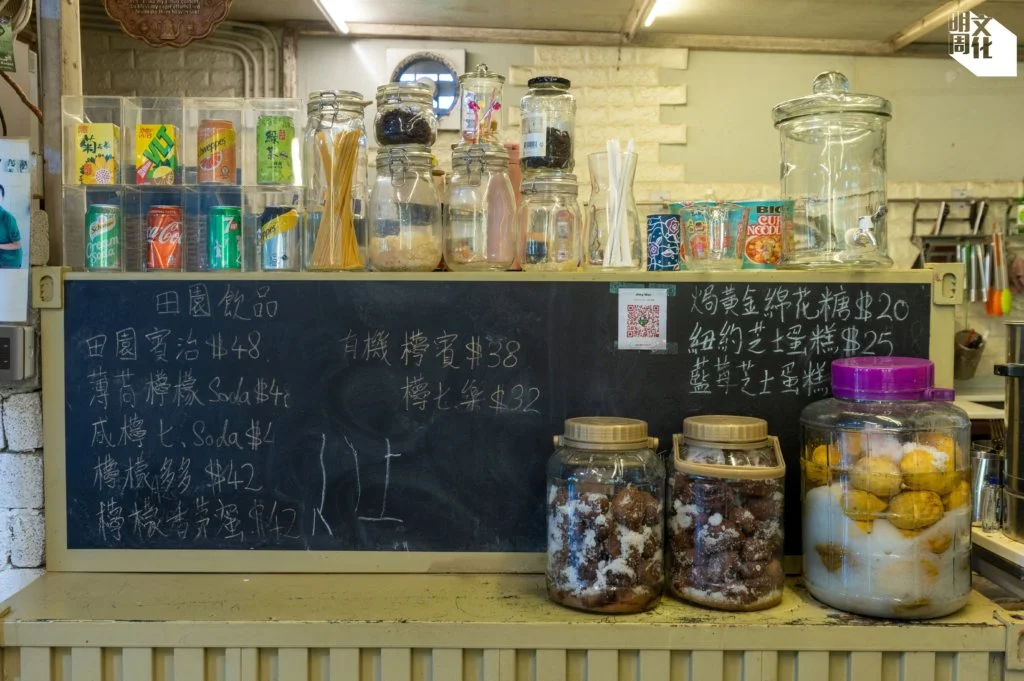 明周文化
菊
Schweppes
綠茶
Schweppes
Cream Soda
Coca-Cola
7
BIG
CUP
NOODLES
田園飲品
田園賓治 $48
薄荷檸檬 Soda $4
咸檸七、Soda $4
檸檬多多 $42
檸檬香茅蜜 $42
有機檸賓 $38
檸七樂 $32
焗黃金綿花糖 $20
紐約芝士蛋糕 $25
藍莓芝士蛋糕